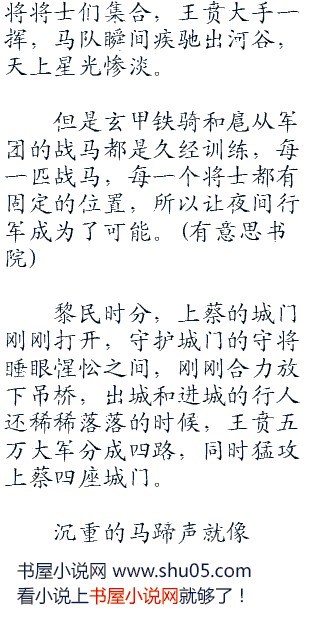 将将士们集合，王贲大手一
挥，马队瞬间疾驰出河谷，
天上星光惨淡。
但是玄甲铁骑和扈从军
团的战马都是久经训练，每
一匹战马，每一个将士都有
固定的位置，所以让夜间行
军成为了可能。(有意思书
院)
黎民时分，上蔡的城门
刚刚打开，守护城门的守将
睡眼惺忪之间，刚刚合力放
下吊桥，出城和进城的行人
还稀稀落落的时候，王贲五
万大军分成四路，同时猛攻
上蔡四座城门。
沉重的马蹄声就像
书屋小说网 www.shu05.com
看小说上书屋小说网就够了！